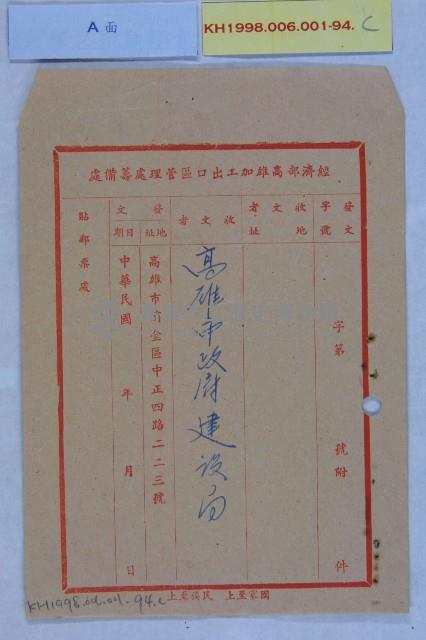 A面
KH1998.006.001-94. C
經濟部高雄加工出口區管理處籌備處
發文字號
字第 號附 件
收文者地址
收文者
高雄市政府建設局
發文地址
高雄市前金區中正四路二二三號
發文日期
中華民國 年 月 日
貼郵票處
國家至上 民族至上
KH1998.06.001-94.c